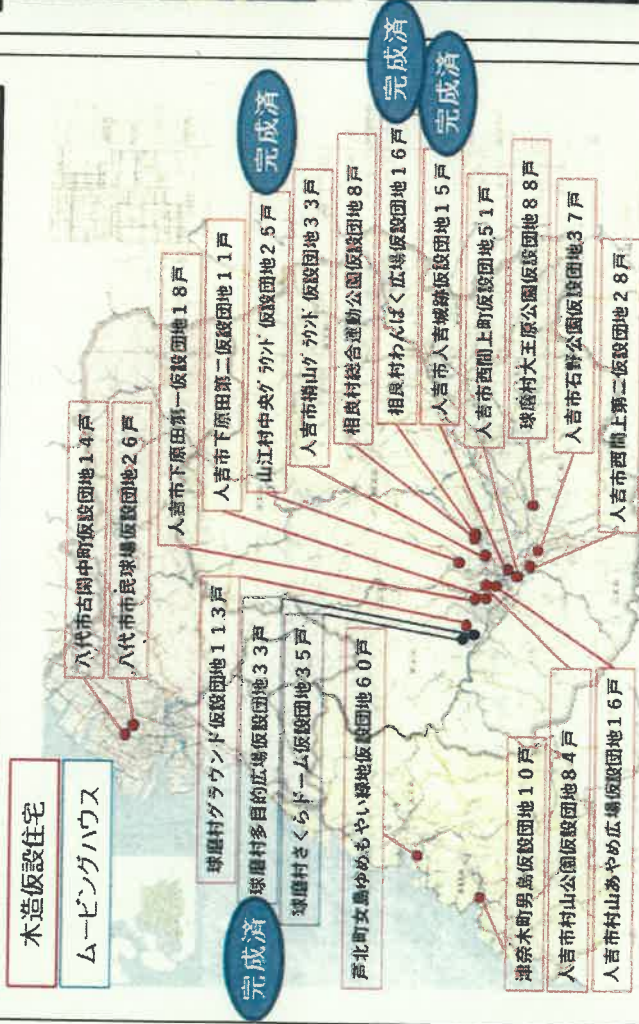 木造仮設住宅
ムービングハウス
八代市古閑中町仮設団地14戸
八代市市民球場仮設団地26戸
人吉市下原田第一仮設団地18戸
人吉市下原田第二仮設団地11戸
山江村中央グラウンド仮設団地25戸
完成済
人吉市梢山グラウンド仮設団地33戸
相良村総合運動公園仮設団地8戸
相良村わんぱく広場仮設団地16戸
完成済
人吉市人吉城跡仮設団地15戸
完成済
人吉市西間上町仮設団地51戸
球磨村大王原公園仮設団地88戸
人吉市石野公園仮設団地37戸
人吉市西間上第二仮設団地28戸
球磨村グラウンド仮設団地113戸
球磨村多目的広場仮設団地33戸
完成済
球磨村さくらドーム仮設団地35戸
芦北町女島ゆめもやい緑地仮設団地60戸
津奈木町男島仮設団地10戸
人吉市村山公園仮設団地84戸
人吉市村山あやめ広場仮設団地16戸